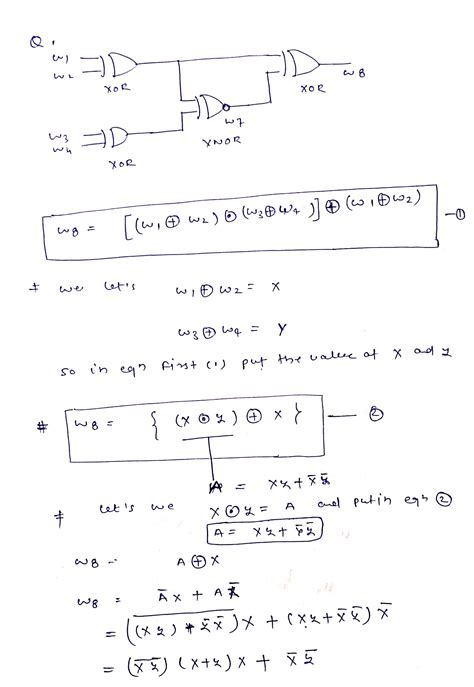 Q.
w1
w2
XOR
XOR
w8
w7
XNOR
w3
w4
XOR
w8 = [(w1 ⊕ w2) ⊙ (w3 ⊕ w4)] ⊕ (w1 ⊕ w2) — ①
* we let's w1 ⊕ w2 = X
w3 ⊕ w4 = Y
so in eqn first (1) put the value of X ad y
# w8 = { (x ⊙ y) ⊕ x } — ②
A = xy + x̄ȳ
* let's we x ⊙ y = A and put in eqn ②
A = xy + x̄ȳ
w8 = A ⊕ X
w8 = Āx + Ax̄
= (\overline{(xy) + ȳx̄}) x + (xy + x̄ȳ) x̄
= (\overline{xy}) (x+y) x + x̄ȳ